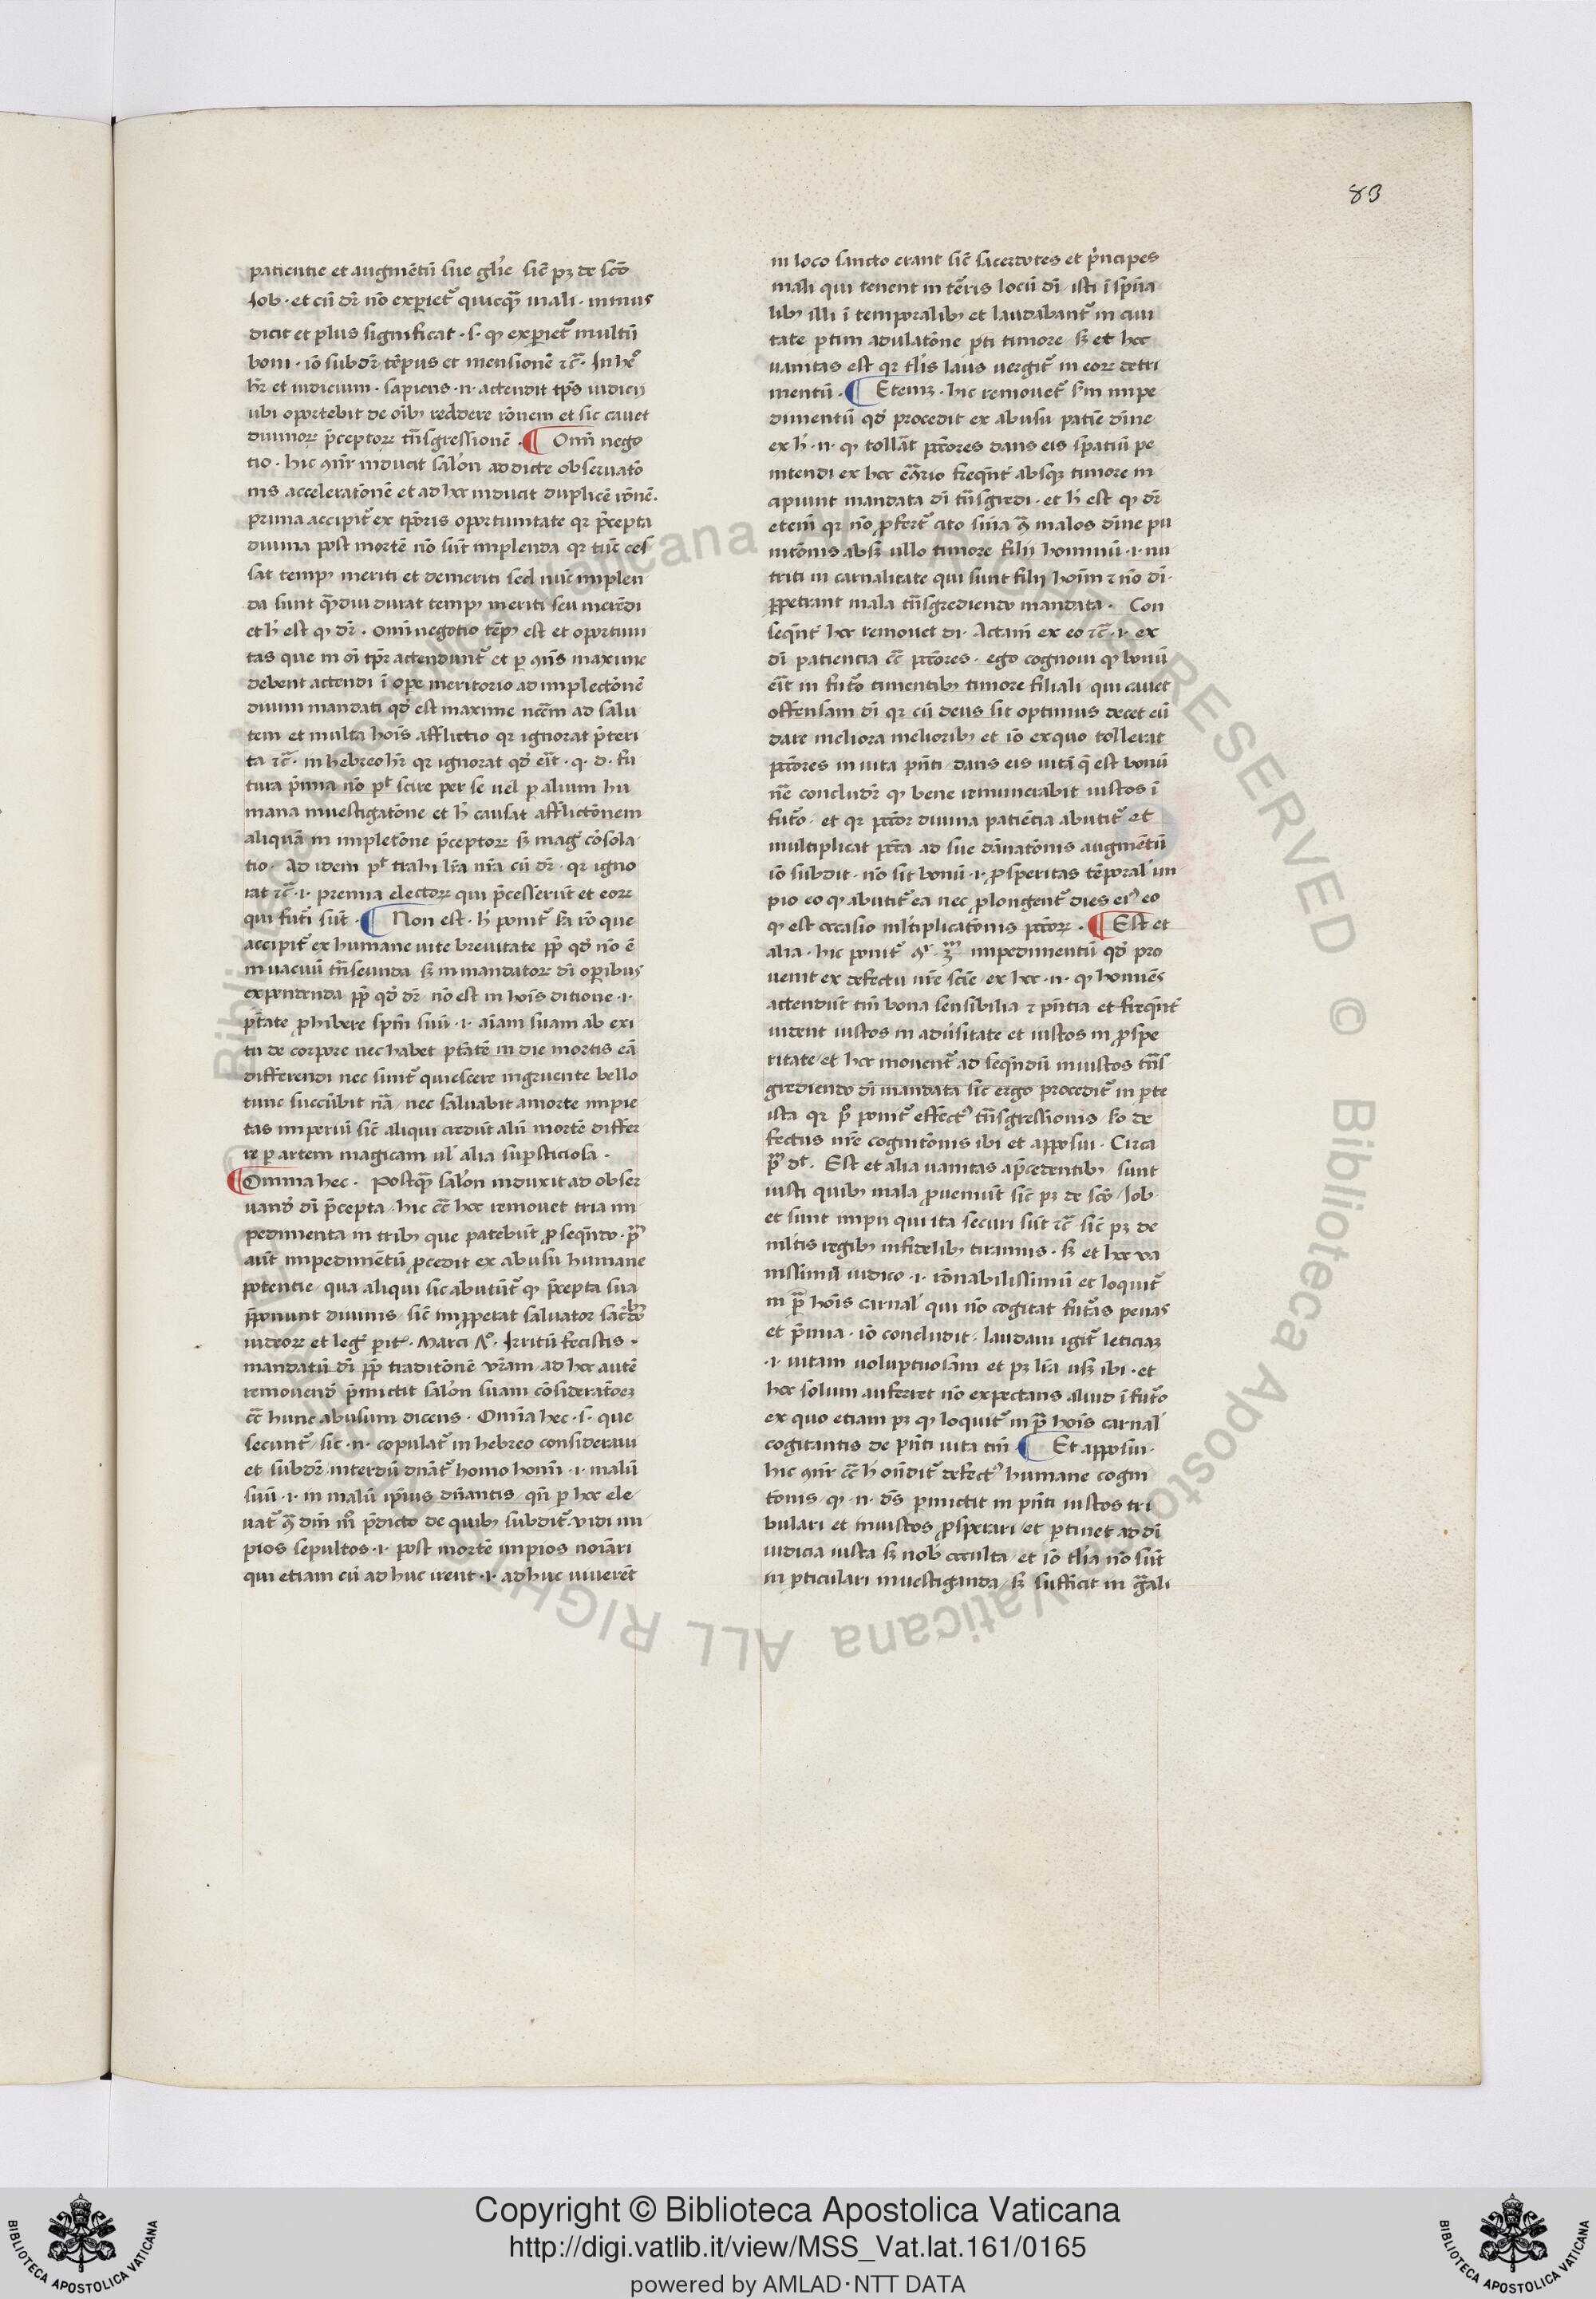 83
patientie et augmētū sue gl'ie sic̄ pꝫ de scō
Iob · et cū dr̄ nō experiet᷑ quicq̄ mali · minus
dicit et plus significat · s · qꝫ experiet᷑ multū
boni · iō subdr̄ tēpus et mensionē ⁊c̄ · In heº
hr̄ et iudicium · sapiens · n · actendit tp̄s iudicij
ubi oportebit de oībꝫ reddere rōnem et sic cavet
diuinoꝝ p̄ceptoꝝ tn̄sgressionē · ¶ Om̄i nego
tio · hic ꝯn̄r inducit salōn ad dicte observatō
nis acceleratōnē et ad hoc inducit duplicē rōnē ·
prima accipit᷑ ex tp̄oris oportunitate qr p̄cepta
diuina post mortē nō sūt implenda qr tūc ces
sat tempꝫ meriti et demeriti sed nūc implen
da sunt q̄diu durat tempꝫ meriti seu merēdi
et h̄ est qꝫ dr̄ · om̄i negotio tēpꝫ est et oportuni
tas que in oī tp̄r actendunt᷑ et p ꝯn̄s maxime
debent actendi ī ope meritorio ad implectōnē
diuini mandati qď est maxime nccm̄ ad salu
tem et multa hoīs afflictio qr ignorat p̄teri
ta ⁊c̄ · in hebreo hr̄ qr ignorat qď erit · q · d · fu
tura p̄mia nō pt scire per se uel p alium hu
mana inuestigatōne et h̄ causat afflictōnem
aliquā in impletōne p̄ceptoꝝ sꝫ mag̕ cōsola
tio · Ad idem pt trahi līa nr̄a cū dr̄ · qr igno
rat ⁊c̄ · i · premia electoꝝ qui p̄cesserūt et eoꝝ
qui futi sūt · ¶ Non est · h̄ ponit᷑ sa rō que
accipit᷑ ex humane uite breuitate pp̄ qď nō ē
in uacuū tn̄seunda sꝫ in mandatoꝝ dī operibus
expendenda pp̄ qď dr̄ · nō est in hoīs ditione · i ·
ptāte phibere spm̄ suū · i · aīam suam ab exi
tu de corpore nec habet ptātē in die mortis eā
differendi nec sinit᷑ quiescere ingruente bello
tunc succūbit nā / nec saluabit a morte impie
tas impiū sic̄ aliqui credūt alii mortē differ
re p artem magicam ul̕ alia supsticiosa ·
¶ Omnia hec · Postq̄ salōn induxit ad obser
uandꝰ dī p̄cepta / hic cc̄ hoc remouet tria im
pedimenta in tribꝫ que patebūt p seqn̄do · pᵐ
aūt impedimētū pcedit ex abusu humane
potentie / qua aliqui sic abutūt᷑ qꝫ p̄cepta sua
p̄ponunt diuinis / sic̄ improperat saluator sac̄do
iudeoꝝ et leg̕ pit᷑ · Marci 7º · Irritū fecistis
mandatū dī pp̄ traditōnē ur̄am · ad hoc autē
remouendꝰ p̄mictit salōn suam cōsideratōeꝫ
cc̄ hunc abusum dicens · Omīa hec · s · que
secunt᷑ / sic · n · copulat᷑ in hebreo consideraui
et subdr̄ · interdū dn̄at᷑ homo homī · i · malū
suū · i · in malū ipsius dn̄antis / qn̄ p hoc ele
uat᷑ ꝯ dm̄ mº p̄dicto de quibꝫ subdit᷑ · vidi im
pios sepultos · i · post mortē impios noīari
qui etiam cū ad huc irent · i · ad huc uiuerēt
in loco sancto erant sic̄ sacerdotes et p̄ncipes
mali qui tenent in tēris locū dī · isti ī spīūa
libꝫ illi ī temporalibꝫ et laudabant᷑ in ciui
tate ptim adulatōne pti timore sꝫ et hoc
uanitas est qr tlis laus vergit᷑ in eoꝝ detri
mentū · ¶ Etenīꝫ · hic remouet᷑ sm̄ impe
dimentū qď procedit ex abusu patiē diīne
ex h̄ · n · qꝫ tollāt pccōres dans eis spatiū pe
intendi ex hoc cr̄ario freqn̄t absqꝫ timore in
cipiunt mandata dī tn̄sgredi · et h̄ est qꝫ dr̄
etenī qr nō pfert᷑ cito sn̄ia ꝯ malos diīne pu
nitōnis absꝫ ullo timore filij hominū · i · nu
triti in carnalitate qui sunt filij hoīm ⁊ nō dī ·
ppetrant mala tn̄sgrediendo mandata · Con
seqn̄t᷑ hoc remouet dī · Actam̄ ex eo ⁊c̄ · i · ex
dī patiencia cc̄ pccōres · ego cognoui qꝫ bonū
erit in futº timentibꝫ timore filiali qui cauet
offensam dī qr cū deus sit optimus decet eū
dare meliora melioribꝫ et iō exquo tollerat
pccōres in uita pn̄ti / dans eis uitā q̄ est bonū
nē concludr̄ qꝫ bene remunerabit iustos ī
futº · et qr pccōr diuina patiētia abutit᷑ et
multiplicat pcc̄a ad sue dānatōnis augmētū
iō subdit · nō sit bonū · i · psperitas tēporal̕ im
pio eo qꝫ abutit᷑ ea nec plongent᷑ dies eiꝰ eo
qꝫ est occasio ml̕tiplicatōnis pccōꝝ · ¶ Est et
alia · hic ponit᷑ 3ᵐ impedimentū qď pro
uenit ex defectu nr̄e scīe / ex hoc · n · qꝫ homīes
actendūt tm̄ bona sensibilia ⁊ pn̄tia et freqn̄t
uident iustos in aduersitate et iustos in pspe
ritate / et hoc mouent᷑ ad seqn̄dū iniustos tn̄s
grediendo dī mandata sic ergo procedit᷑ in pte
ista qr pº ponit᷑ effectꝰ tn̄sgressionis so de
fectus nr̄e cognitōnis ibi et apposui · Circa
pᵐ dt · Est et alia uanitas a p̄cedentibꝫ / sunt
iusti quibꝫ mala proueniūt sic̄ pꝫ de scō Iob
et sunt impii qui ita securi sūt ⁊c̄ sic̄ pꝫ de
ml̕tis regibꝫ infidelibꝫ tirannis · sꝫ et hoc ua
nissimū iudico · i · rōnabilissimū et loquit᷑
in pᵃ hoīs carnal̕ qui nō cogitat futas penas
et p̄mia · iō concludit · laudaui igit᷑ leticiaꝫ
· i · uitam uoluptuosam et pꝫ līa usꝫ ibi · et
hoc solum auferret nō expectans aliud ī futº
ex quo etiam pꝫ qꝫ loquit᷑ in pᵃ hoīs carnal̕
cogitantis de pn̄ti uita tm̄ · ¶ Et apposui ·
hic ꝯn̄r cc̄ h̄ on̄dit᷑ defectꝰ humane cogni
tōnis / qꝫ · n · ds̄ pmictit in pn̄ti iustos tri
bulari et iniustos psperari / et ptinet ad dī
iudicia iusta sꝫ nob̕ occulta / et iō tlia nō sūt
in pticulari inuestiganda / sꝫ sufficit in gn̄ali
Copyright © Biblioteca Apostolica Vaticana
http://digi.vatlib.it/view/MSS_Vat.lat.161/0165
powered by AMLAD·NTT DATA
BIBLIOTECA APOSTOLICA VATICANA
BIBLIOTECA APOSTOLICA VATICANA